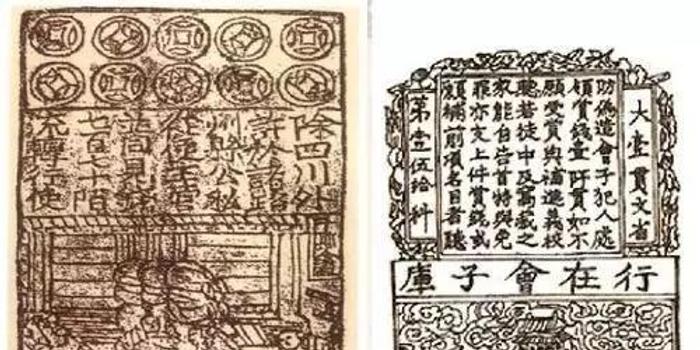 除四川外
許於諸路
州縣公私
從便主管
並同見錢
七百七十陌
流轉行使
大壹貫文省
防偽造會子犯人處
賞錢壹阡貫如不
願受賞與補進義校
若徒中及窩藏之
家能自告首特與免
罪亦支上件賞錢或
願補前項名目者聽
第壹伍拾料
行在會子庫